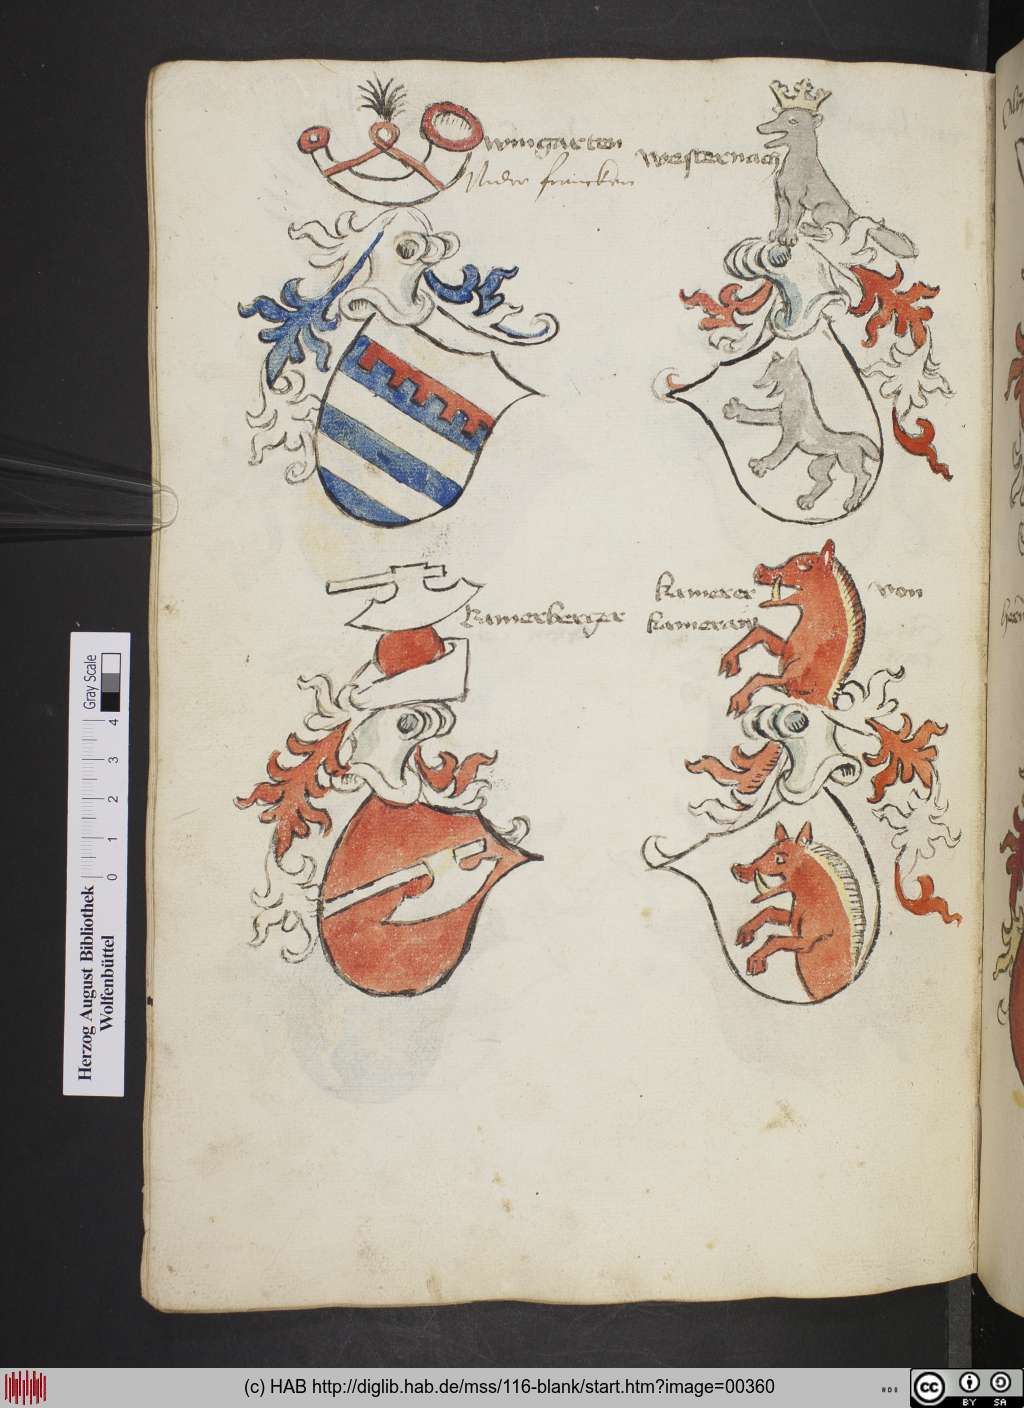 wingarten
westernach
Kamerberger
Kamerer
von
Kameraw
Gray Scale
0 1 2 3 4
Herzog August Bibliothek
Wolfenbüttel
(c) HAB http://diglib.hab.de/mss/116-blank/start.htm?image=00360
cc BY SA